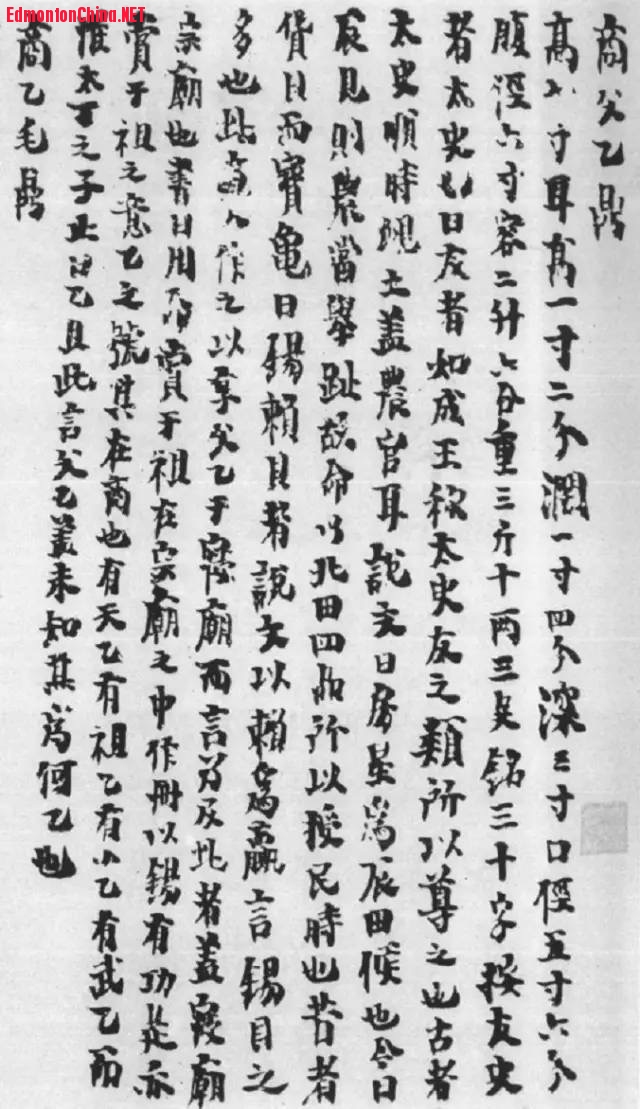 EdmontonChina.NET
商父乙鼎
高六寸耳高一寸二分濶一寸四分深三寸口徑五寸六分
腹徑六寸容二升六合重三斤十兩三足銘三十字按友史
者太史也曰友者如成王称太史友之類所以尊之也古者
太史順時覛土盖農官耳說文曰房星為辰田候也今曰
辰見則農當舉趾故命以北田四品所以授民時也昔者
貨貝而寶亀曰錫賴貝者說文以賴為贏言錫貝之
多也此為人作之以享父乙于寢廟而言及此者盖寢廟
宗廟也書曰用命賞于祖在宗廟之中作冊以錫有功是亦
賞于祖之意乙之號其在商也有天乙有祖乙有小乙有武乙而
惟太丁之子止曰乙且此言父乙盖未知其為何乙也
商乙毛鼎